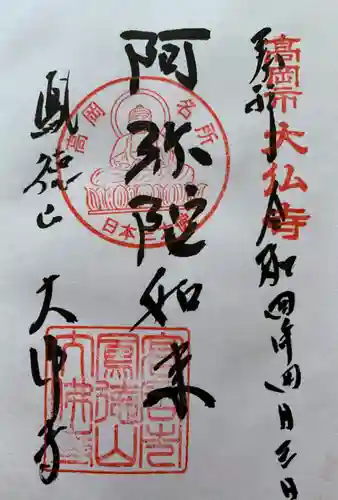 高岡市大仏寺
奉拝 令和四年四月三日
阿弥陀如来
高岡名所
日本三大佛
鳳徳山
大佛寺